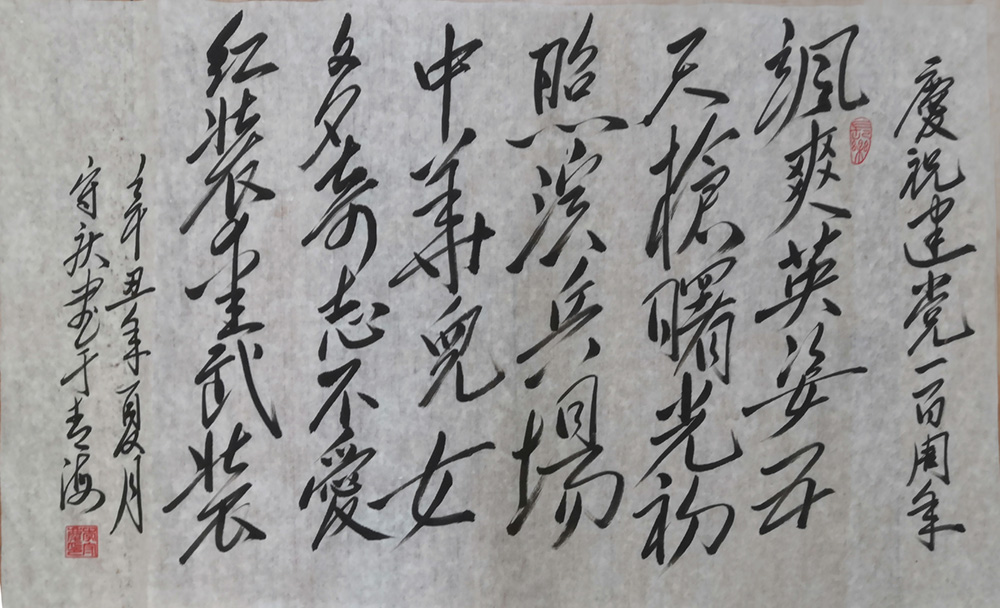 慶祝建党一百周年
颯爽英姿五
尺槍曙光初
照演兵場
中華兒女
多奇志不愛
紅裝愛武裝
辛丑年夏月
守庆书于青海